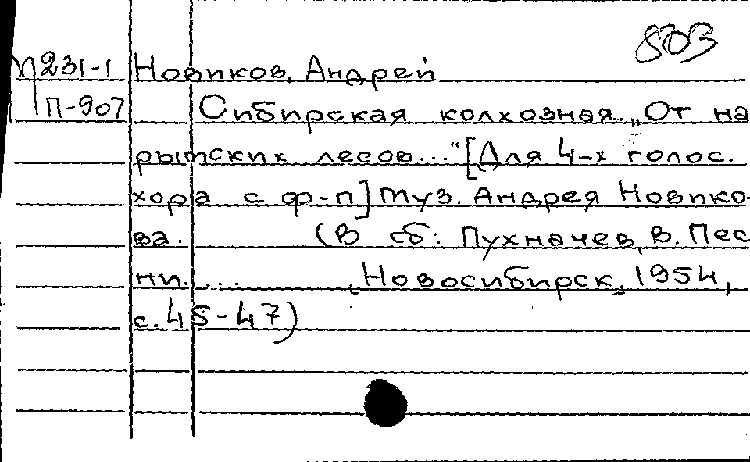 803
П231-1 Новиков, Андрей
П-907 Сибирская колхозная. „От на
рымских лесов..." [Для 4-х голос.
хора с ф-п] Муз. Андрея Новико
ва. (В сб: Пухначев, В. Пес
ни.... , Новосибирск, 1954,
с. 45-47)